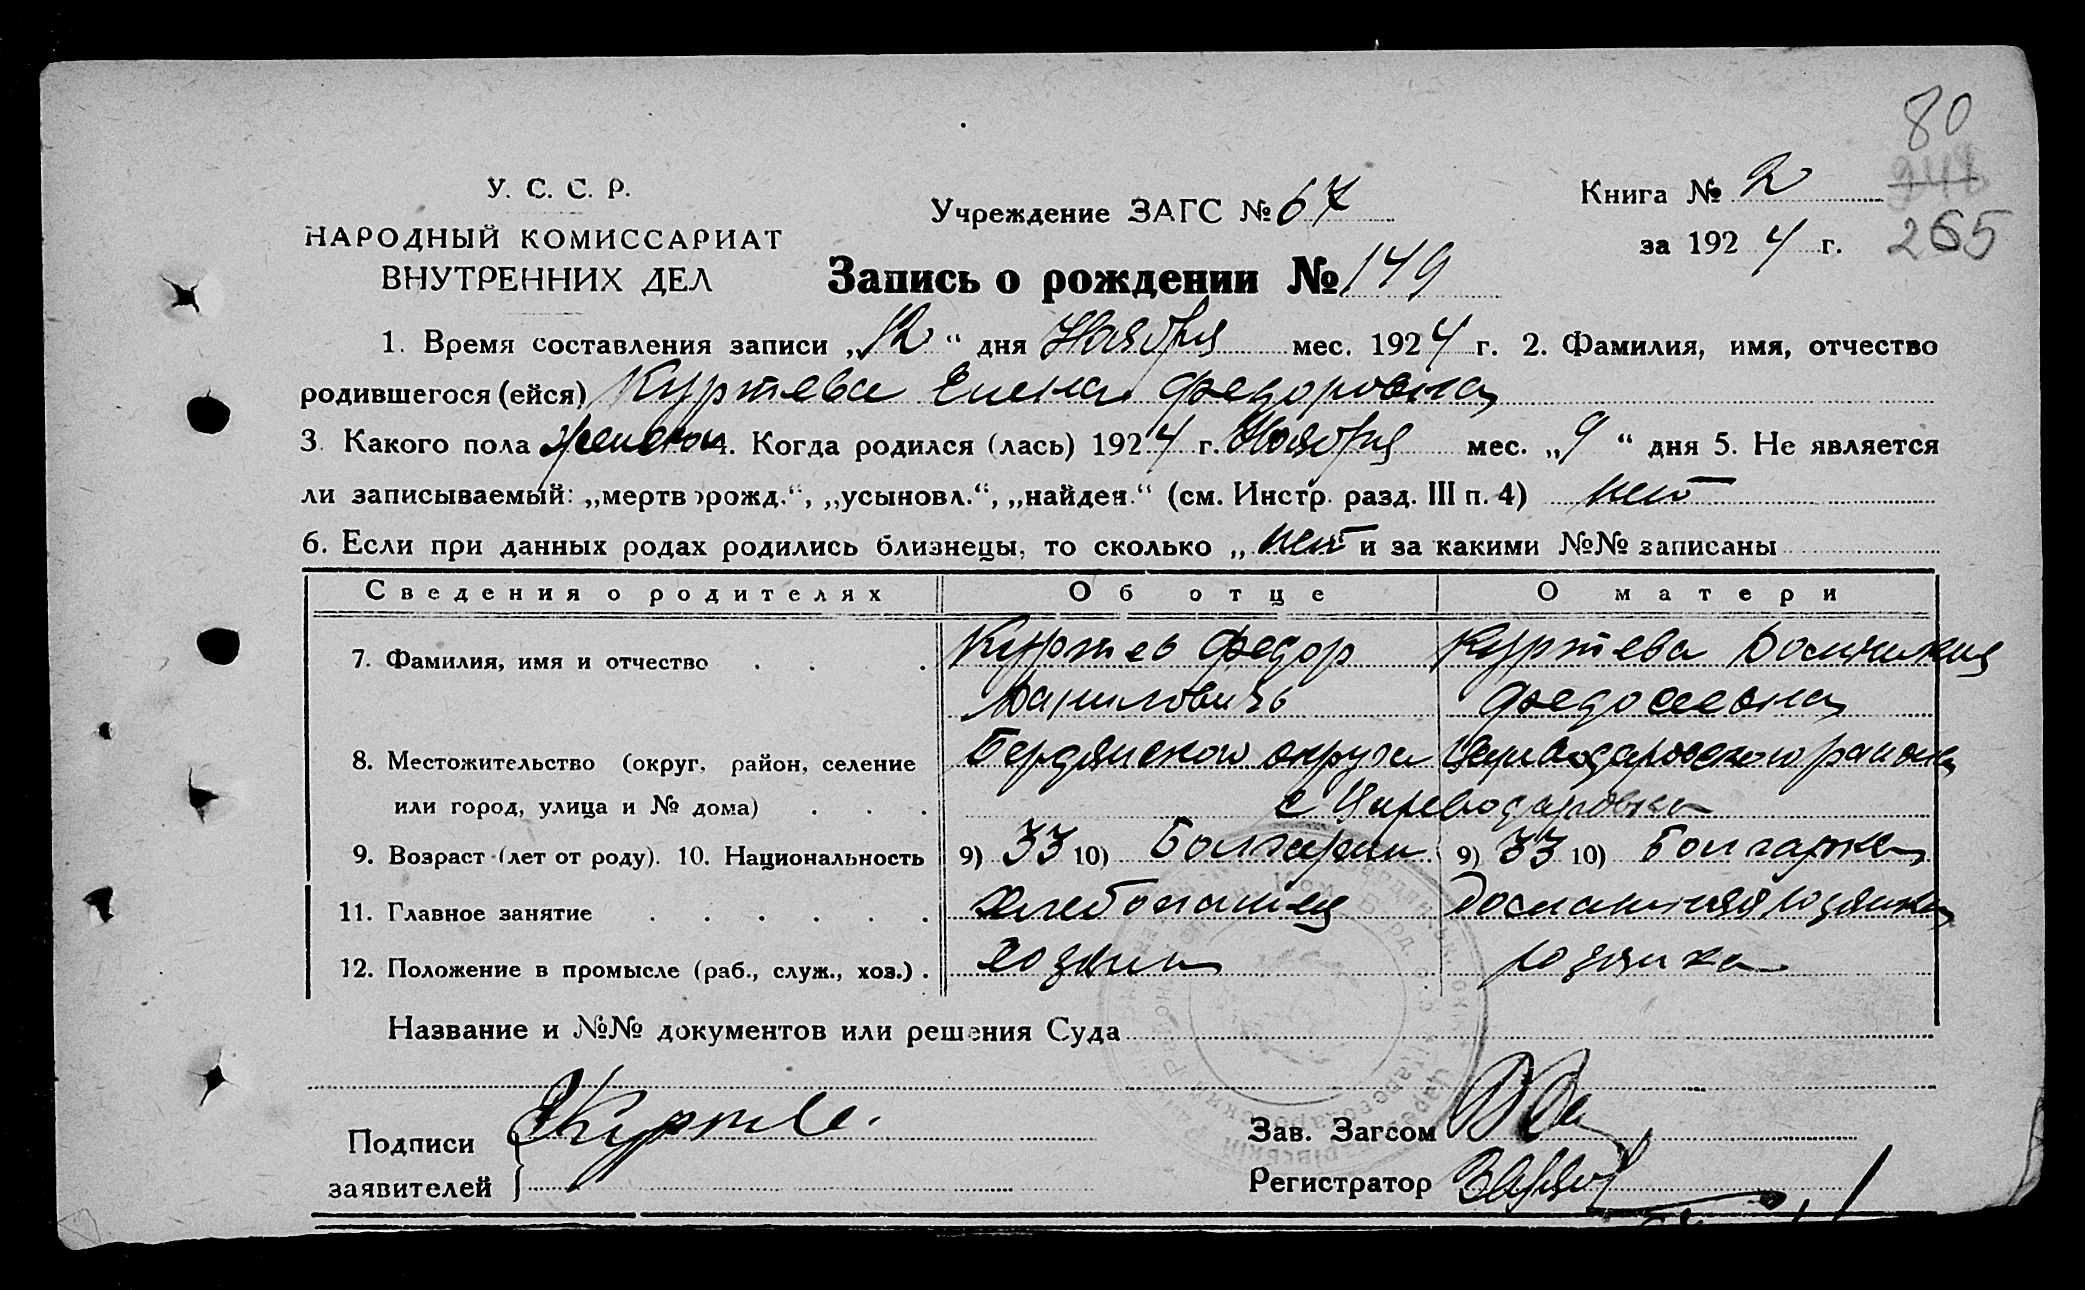 80
У. С. С. Р.
Учреждение ЗАГС № 67
Книга № 2
НАРОДНЫЙ КОМИССАРИАТ
за 1924 г.
265
ВНУТРЕННИХ ДЕЛ
Запись о рождении № 149
1. Время составления записи „12“ дня Ноября мес. 1924 г. 2. Фамилия, имя, отчество
родившегося (ейся) Куртева Елена Федоровна
3. Какого пола женскои 4. Когда родился (лась) 1924 г. Ноября мес. „9“ дня 5. Не является
ли записываемый: „мертворожд.“, „усыновл.“, „найден.“ (см. Инстр. разд. III п. 4) нет
6. Если при данных родах родились близнецы, то сколько „ нет и за какими №№ записаны
Сведения о родителях Об отце О матери
7. Фамилия, имя и отчество Куртев Федор Куртева
Даниловичь
8. Местожительство (округ, район, селение Бердянского округа Цареводаровского района
или город, улица и № дома) с Цареводаровка
9. Возраст (лет от роду). 10. Национальность 9) 33 10) Болгарин 9) 33 10) Болгарка
11. Главное занятие хлебопашец Домашняя хозяика
12. Положение в промысле (раб., служ., хоз.) хозяин хозяика
Название и №№ документов или решения Суда
Подписи
заявителей
Зав. Загсом
Регистратор